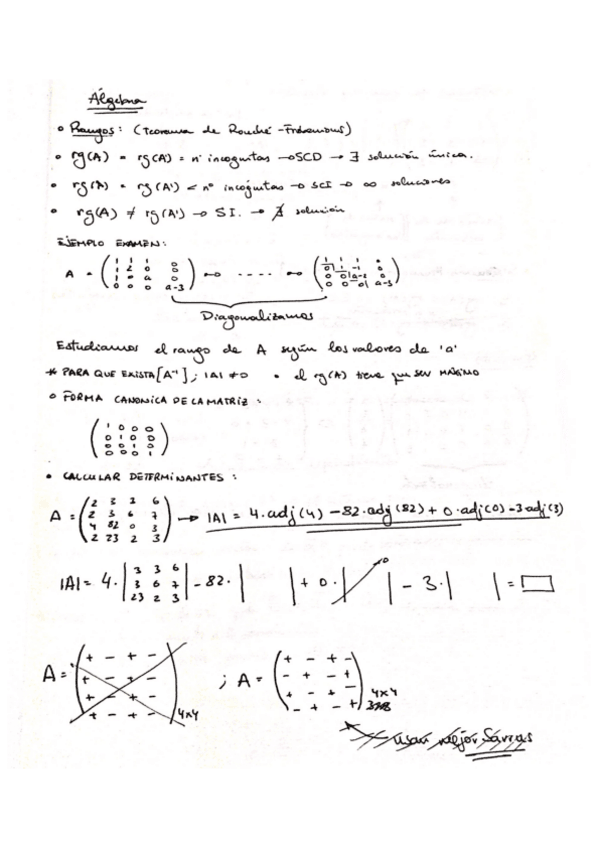 Álgebra
° Rangos: (Teorema de Rouché-Frobenius)
° rg(A) = rg(A) = nº incognitas → SCD → ∃ solución única.
• rg(A) = rg(A') < nº incógnitas → SCI → ∞ soluciones
• rg(A) ≠ rg(A') → SI. → ∄ solución
EJEMPLO EXAMEN:
A =
1 1 1 0
1 2 0 0
1 0 a 0
0 0 0 a-3
-----
a-3
Diagonalizamos
Estudiamos el rango de A según los valores de 'a'
* PARA QUE EXISTA [A⁻¹]; |A| ≠ 0 • el rg(A) tiene que ser MÁXIMO
° FORMA CANONICA DE LA MATRIZ:
1 0 0 0
0 1 0 0
0 0 1 0
• CALCULAR DETERMINANTES:
A =
2 3 3 6
2 3 6 7
4 82 0 3
2 23 2 3
→ |A| = 4·adj(4) - 82·adj(82) + 0·adj(0) - 3 adj(3)
|A| = 4·
3 3 6
3 6 7
23 2 3
- 82· | | + 0· | | - 3· | | =
A =
+ - + -
+ - + -
+ - + -
+ - + -
4x4
; A =
+ - + -
- + - +
+ - + -
- + - +
4x4
usar mejor Sarrus